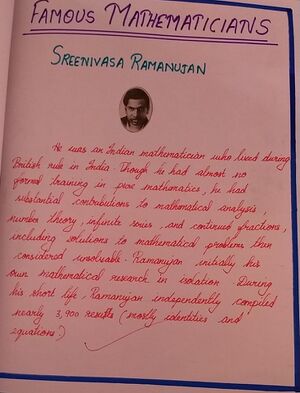 FAMOUS MATHEMATICIANS
SREENIVASA RAMANUJAN
He was an Indian mathematician who lived during
British rule in India. Though he had almost no
formal training in pure mathematics, he had
substantial contributions to mathematical analysis,
number theory, infinite series, and continued fractions,
including solutions to mathematical problems then
considered unsolvable. Ramanujan initially his
own mathematical research in isolation. During
his short life, Ramanujan independently compiled
nearly 3,900 results (mostly identities and
equations)